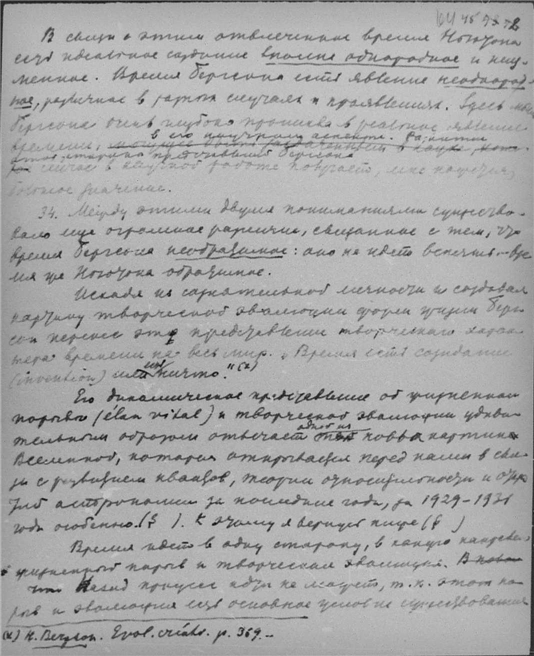 В связи с этим отвлеченное время Ньютона
есть идеальное создание вполне однородное и неиз-
менное. Время Бергсона есть явление неоднород-
ное, различное в разных случаях и проявлениях. Здесь мысль
Бергсона очень глубоко проникла в реальное явление
времени,
в его научном аспекте.
эта сторона представлений Бергсона
сейчас в научной работе получает, мне кажется,
большое значение.
34. Между этими двумя пониманиями существо-
вало еще огромное различие, связанное с тем, что
время Бергсона необратимое: оно не идет вспять. Вре-
мя же Ньютона обратимое.
Исходя из сознательной личности и создавая
картину творческой эволюции форм жизни Берг-
сон перенес это представление творческого харак-
тера времени на весь мир. "Время есть создание
(invention) или оно ничто." (x)
Его динамическое представление об жизненном
порыве (élan vital) и творческой эволюции удиви-
тельным образом отвечает одной из новых картин
Вселенной, которая открывается перед нами в свя-
зи с развитием квантов, теории относительности и
астрономии за последние годы, за 1929-1931
года особенно. (§ ). К этому я вернусь ниже (§ )
Время идет в одну сторону, в какую направлен
жизненный порыв и творческая эволюция.
Назад процесс идти не может, т.к. этот по-
рыв и эволюция есть основное условие существования
(x) H. Bergson. Evol. créatr. p. 369.-